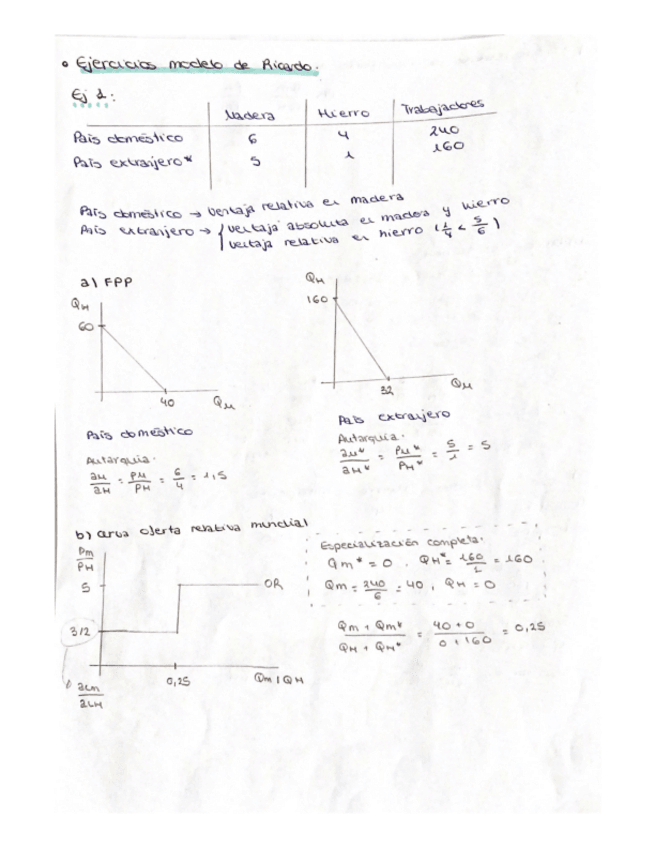 • Ejercicios modelo de Ricardo.
Ej 1:
Madera Hierro Trabajadores
País doméstico 6 4 240
País extranjero* 5 1 160
País doméstico → ventaja relativa en madera
País extranjero → { ventaja absoluta en madera y hierro
ventaja relativa en hierro (1/4 < 5/6)
a) FPP
QH
60
40 QM
País doméstico
Autarquía.
aM/aH = PM/PH = 6/4 = 1,5
QH
160
32 QM
País extranjero
Autarquía.
aM*/aH* = PM*/PH* = 5/1 = 5
b) curva oferta relativa mundial
Pm/PH
5 OR
3/2
0,25 Qm/QH
aLm/aLH
Especialización completa.
Qm* = 0 , QH* = 160/1 = 160
Qm = 240/6 = 40 , QH = 0
Qm + Qm*/QH + QH* = 40 + 0/0 + 160 = 0,25